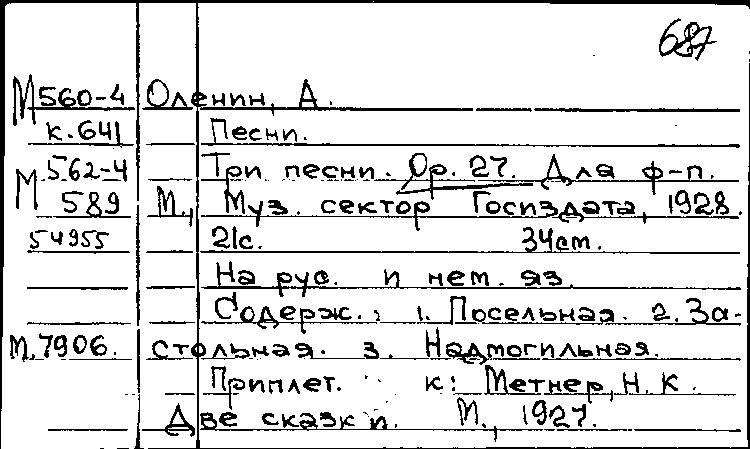 687
М 560-4 Оленин, А.
к. 641 Песни.
М 562-4 Три песни. Ор. 27. Для ф-п.
589 М., Муз. сектор Госиздата, 1928.
54955 21с. 34см.
На рус. и нем. яз.
Содерж.: 1. Посельная. 2. За-
М. 7906. стольная. 3. Надмогильная.
Приплет. к: Метнер, Н. К.
Две сказки. М., 1927.